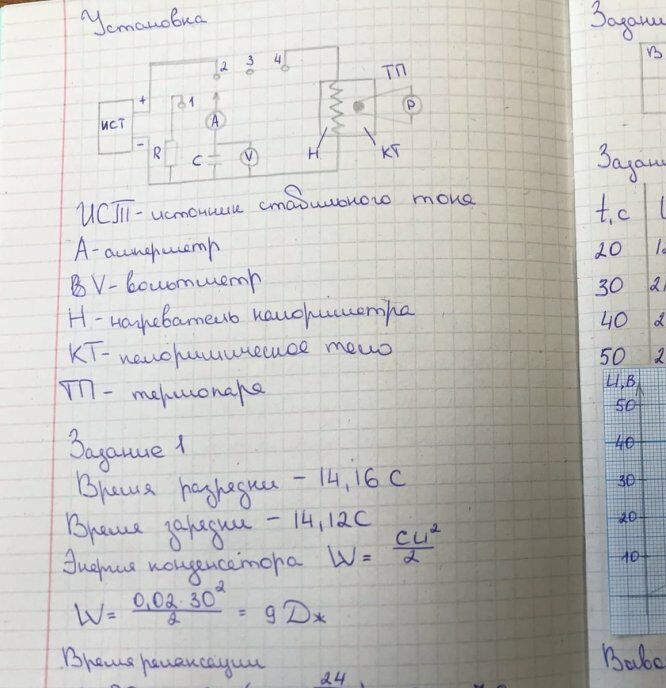 Установка
ИСТ
+
-
R
1
2
3
4
A
C
V
H
КТ
ТП
P
ИСТ - источник стабильного тока
А - амперметр
V - вольтметр
Н - нагреватель калориметра
КТ - калориметрическое тело
ТП - термопара
Задание 1
Время разрядки - 14,16 С
Время зарядки - 14,12 С
Энергия конденсатора W = CU²/2
W = 0,02 · 30²/2 = 9 Дж
Время релаксации
24
Задани
В
Задани
t, c
20
30
40 2
50 2
U, В
50
40
30
20
10